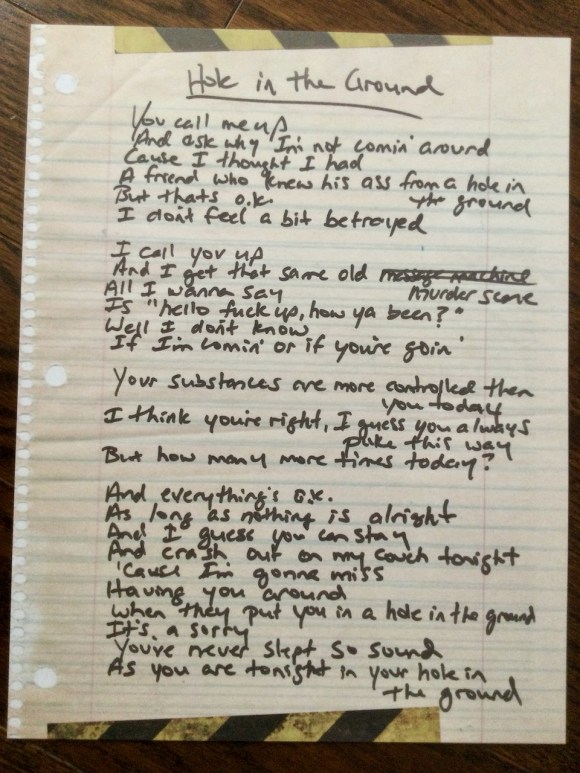 Hole in the Ground
You call me up
And ask why I'm not comin' around
Cause I thought I had
A friend who knew his ass from a hole in
the ground
But thats o.k.
I don't feel a bit betrayed
I call you up
And I get that same old message machine
murder scene
All I wanna say
Is "hello fuck up, how ya been?"
Well I don't know
If I'm comin' or if you're goin'
Your substances are more controlled then
you today
I think you're right, I guess you always
puke this way
But how many more times today?
And everything's o.k.
As long as nothing is alright
And I guess you can stay
And crash out on my couch tonight
'Cause I'm gonna miss
Having you around
When they put you in a hole in the ground
It's a sorry
You've never slept so sound
As you are tonight in your hole in
the ground